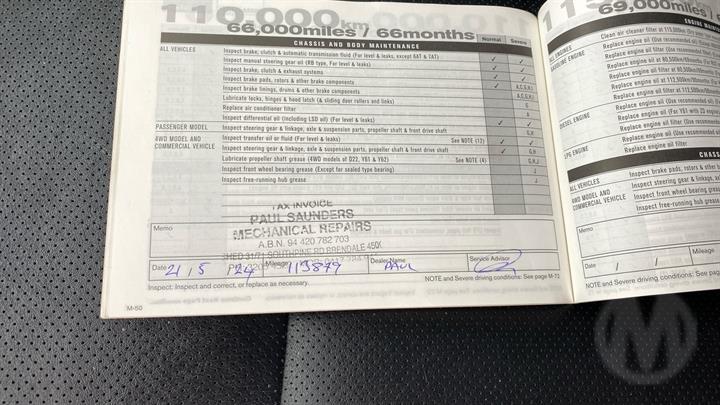 110,000km
66,000miles / 66months
CHASSIS AND BODY MAINTENANCE Normal Severe
ALL VEHICLES Inspect brake, clutch & automatic transmission fluid (For level & leaks, except 6AT & 7AT) ✓
Inspect manual steering gear oil (RB type, For level & leaks) ✓ ✓
Inspect brake, clutch & exhaust systems ✓ ✓
Inspect brake pads, rotors & other brake components ✓
Inspect brake linings, drums & other brake components A,C,G,H,I
Lubricate locks, hinges & hood latch (& sliding door rollers and links) G
Replace air conditioner filter A
Inspect differential oil (Including LSD oil) (For level & leaks) ✓
PASSENGER MODEL Inspect steering gear & linkage, axle & suspension parts, propeller shaft & front drive shaft G,H
4WD MODEL AND COMMERCIAL VEHICLE Inspect transfer oil or fluid (For level & leaks) See NOTE (12) ✓ ✓
Inspect steering gear & linkage, axle & suspension parts, propeller shaft & front drive shaft ✓ G,H
Lubricate propeller shaft grease (4WD models of D22, Y61 & Y62) See NOTE (4) G,H,J
Inspect front wheel bearing grease (Except for sealed type bearing) J
Inspect free-running hub grease J
TAX INVOICE
PAUL SAUNDERS
MECHANICAL REPAIRS
A.B.N. 94 420 782 703
SHED 31/71 SOUTHPINE RD BRENDALE 4500
Memo
Date 21, 5 24 Mileage 113879 Dealer Name PAUL Service Advisor
Inspect: Inspect and correct, or replace as necessary. NOTE and Severe driving conditions: See page M-72
M-50
69,000miles
ENGINE
ALL ENGINES Clean air cleaner filter at 115,000km
GASOLINE ENGINE Replace engine oil (Use recommended oil)
Replace engine oil at 80,500km/
Replace engine oil filter at 80,500km/
Replace engine oil at 112,500km/
Replace engine oil filter at 112,500km/
Replace engine oil (Use recommended oil)
DIESEL ENGINE Replace engine oil (For YS1 with
Replace engine oil filter
Replace engine oil (Use recommended
Replace engine oil filter
LPG ENGINE Replace engine oil (Use recommended
Replace engine oil filter
CHASSIS
ALL VEHICLES Inspect brake pads, rotors & other
4WD MODEL AND COMMERCIAL VEHICLE Inspect steering gear & linkage,
Inspect front wheel bearing grease
Inspect free-running hub grease
Memo
Date / / Mileage
NOTE and Severe driving conditions: See page
M